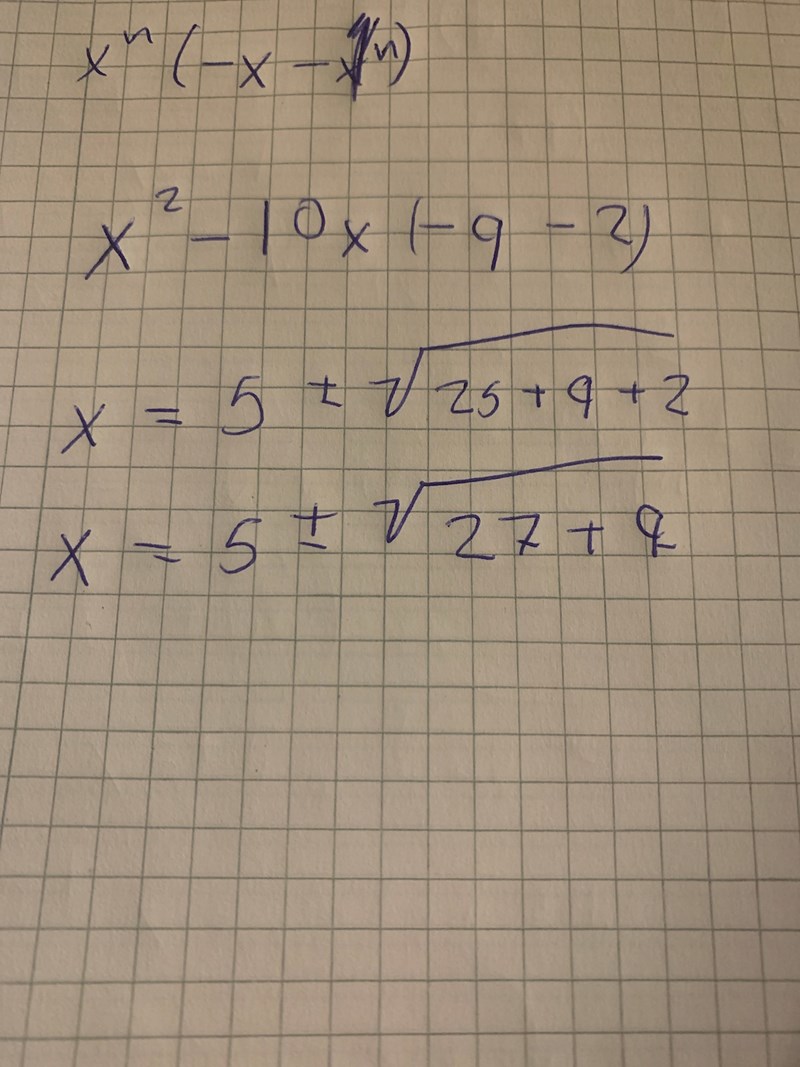 xⁿ (-x - xⁿ)
x² - 10x (-9 - 2)
x = 5 ± √(25 + 9 + 2)
x = 5 ± √(27 + 9)